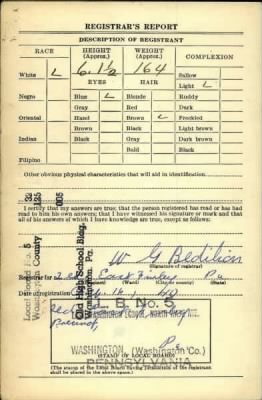 REGISTRAR'S REPORT
DESCRIPTION OF REGISTRANT
RACE HEIGHT (Approx.) WEIGHT (Approx.) COMPLEXION
White ✓ 6. 1½ 164 Sallow
EYES HAIR Light ✓
Negro Blue ✓ Blonde Ruddy
Gray Red Dark
Oriental Hazel Brown ✓ Freckled
Brown Black Light brown
Indian Black Gray Dark brown
Bald Black
Filipino
Other obvious physical characteristics that will aid in identification
I certify that my answers are true; that the person registered has read or has had
read to him his own answers; that I have witnessed his signature or mark and that
all of his answers of which I have knowledge are true, except as follows:
32 125 005
Local Board No. 3
Washington County
Old High School Bldg.
Washington, Pa.
W G Bedilion
(Signature of registrar)
Registrar for East Finley Pa
(State)
Date of registration 16,
L. B. No. 3
WASHINGTON HIGH SCHOOL, NORTH
WASHINGTON, (Washington Co.)
(STAMP OF LOCAL BOARD)
PENNSYLVANIA
(The stamp of the Local Board having jurisdiction of the registrant
shall be placed in the above space.)